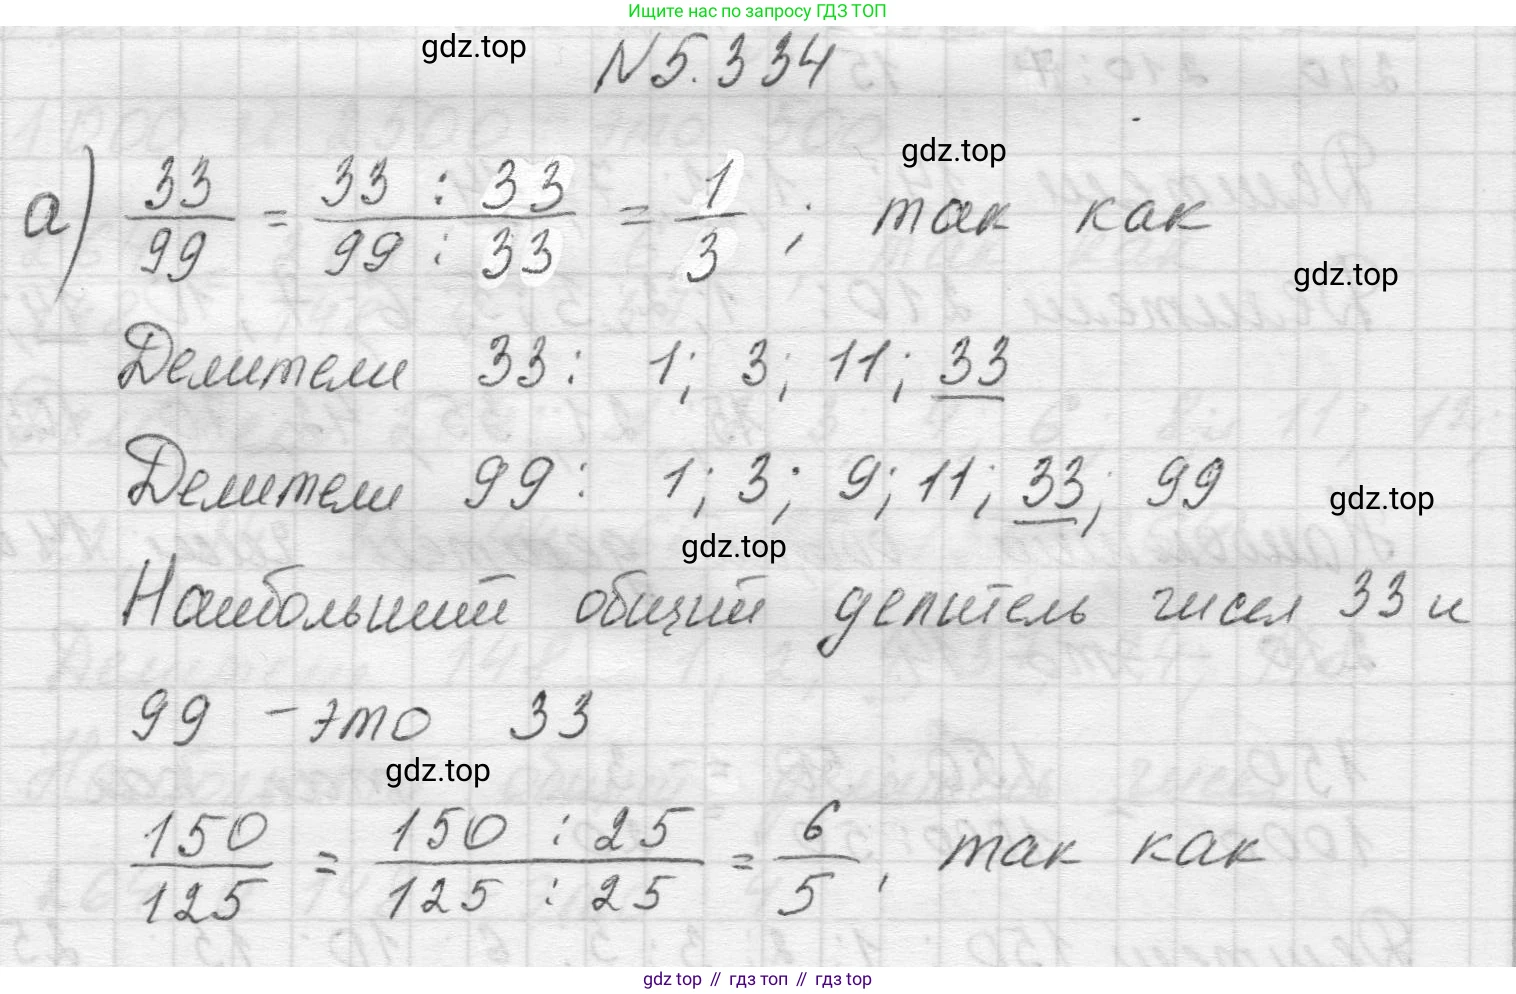 Ищите нас по запросу ГДЗ ТОП
gdz.top
№5.334
gdz.top
а) 33/99 = 33 : 33/99 : 33 = 1/3 ; так как
gdz.top
Делители 33: 1; 3; 11; 33
Делители 99: 1; 3; 9; 11; 33; 99
gdz.top
gdz.top
Наибольший общий делитель чисел 33 и
99 – это 33
gdz.top
150/125 = 150 : 25/125 : 25 = 6/5, так как
gdz top // гдз топ // гдз top